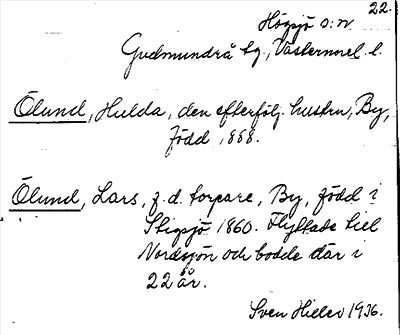 22.
Högsjö s:n
Gudmundrå tg., Västernorrl. l.
Ölund, Hulda, den efterfölj. hustru, By,
född 1888.
Ölund, Lars, f. d. torpare, By, född i
Stigsjö 1860. Flyttade till
Nordsjön och bodde där i
22 år.
Sven Hiller 1936.